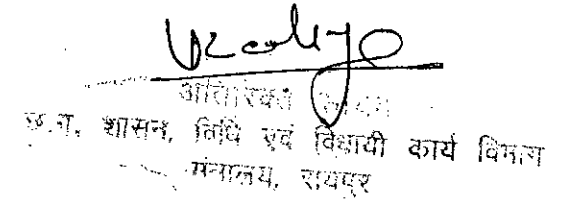 अतिरिक्त
छ.ग. शासन, विधि एवं विधायी कार्य विभाग
मंत्रालय, रायपुर